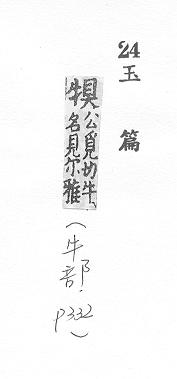 24 玉篇
犑公覓切牛
名見尔雅
(牛部. p332)